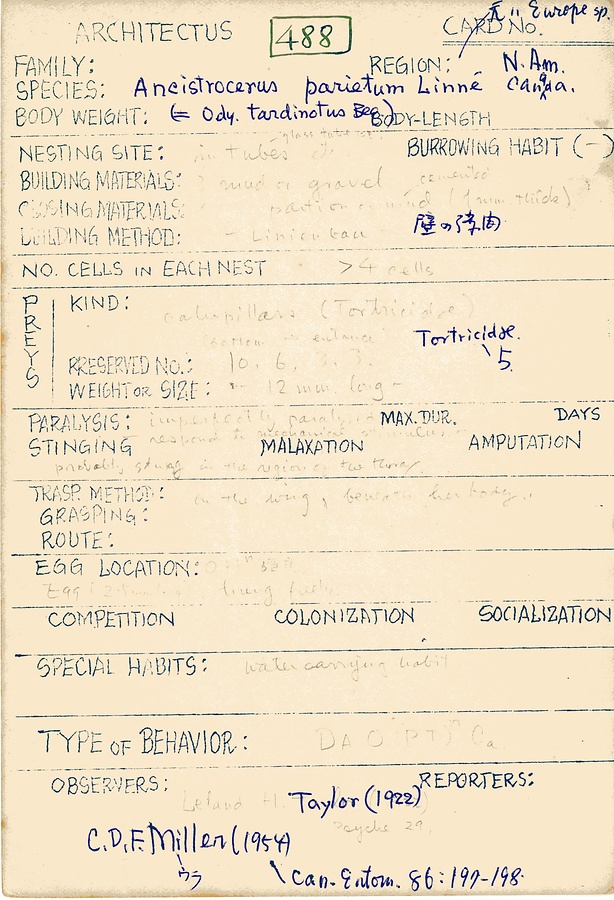 ARCHITECTUS 488 CARD NO. 元 " Europe sp.
FAMILY: REGION: N. Am.
SPECIES: Ancistrocerus parietum Linné Canada.
BODY WEIGHT: (= Ody. tardinotus BODY-LENGTH
glass tube
NESTING SITE: in tubes BURROWING HABIT (-)
BUILDING MATERIALS: mud or gravel cemented
CLOSING MATERIALS: partion mud (1 mm. thick)
BUILDING METHOD: -
NO. CELLS IN EACH NEST >4 cells
PREYS KIND: caterpillars (Tortricidae)
bottom entance Tortricidae.
RRESERVED NO.: 10. 6. 3. 3. 5.
WEIGHT OR SIZE: 12 mm. long -
PARALYSIS: imperfectly paralysed MAX. DUR. DAYS
respond to mechanical stimulus
STINGING MALAXATION AMPUTATION
probably stung in the region of the thorax.
TRASP. METHOD: on the wing, beneath her body.
GRASPING:
ROUTE:
EGG LOCATION:
Egg
COMPETITION COLONIZATION SOCIALIZATION
SPECIAL HABITS: water carrying habit
TYPE OF BEHAVIOR:
OBSERVERS: REPORTERS:
Leland H. Taylor (1922)
Psyche 29,
C.D.F. Miller (1954)
ウラ Can. Entom. 86: 197-198.